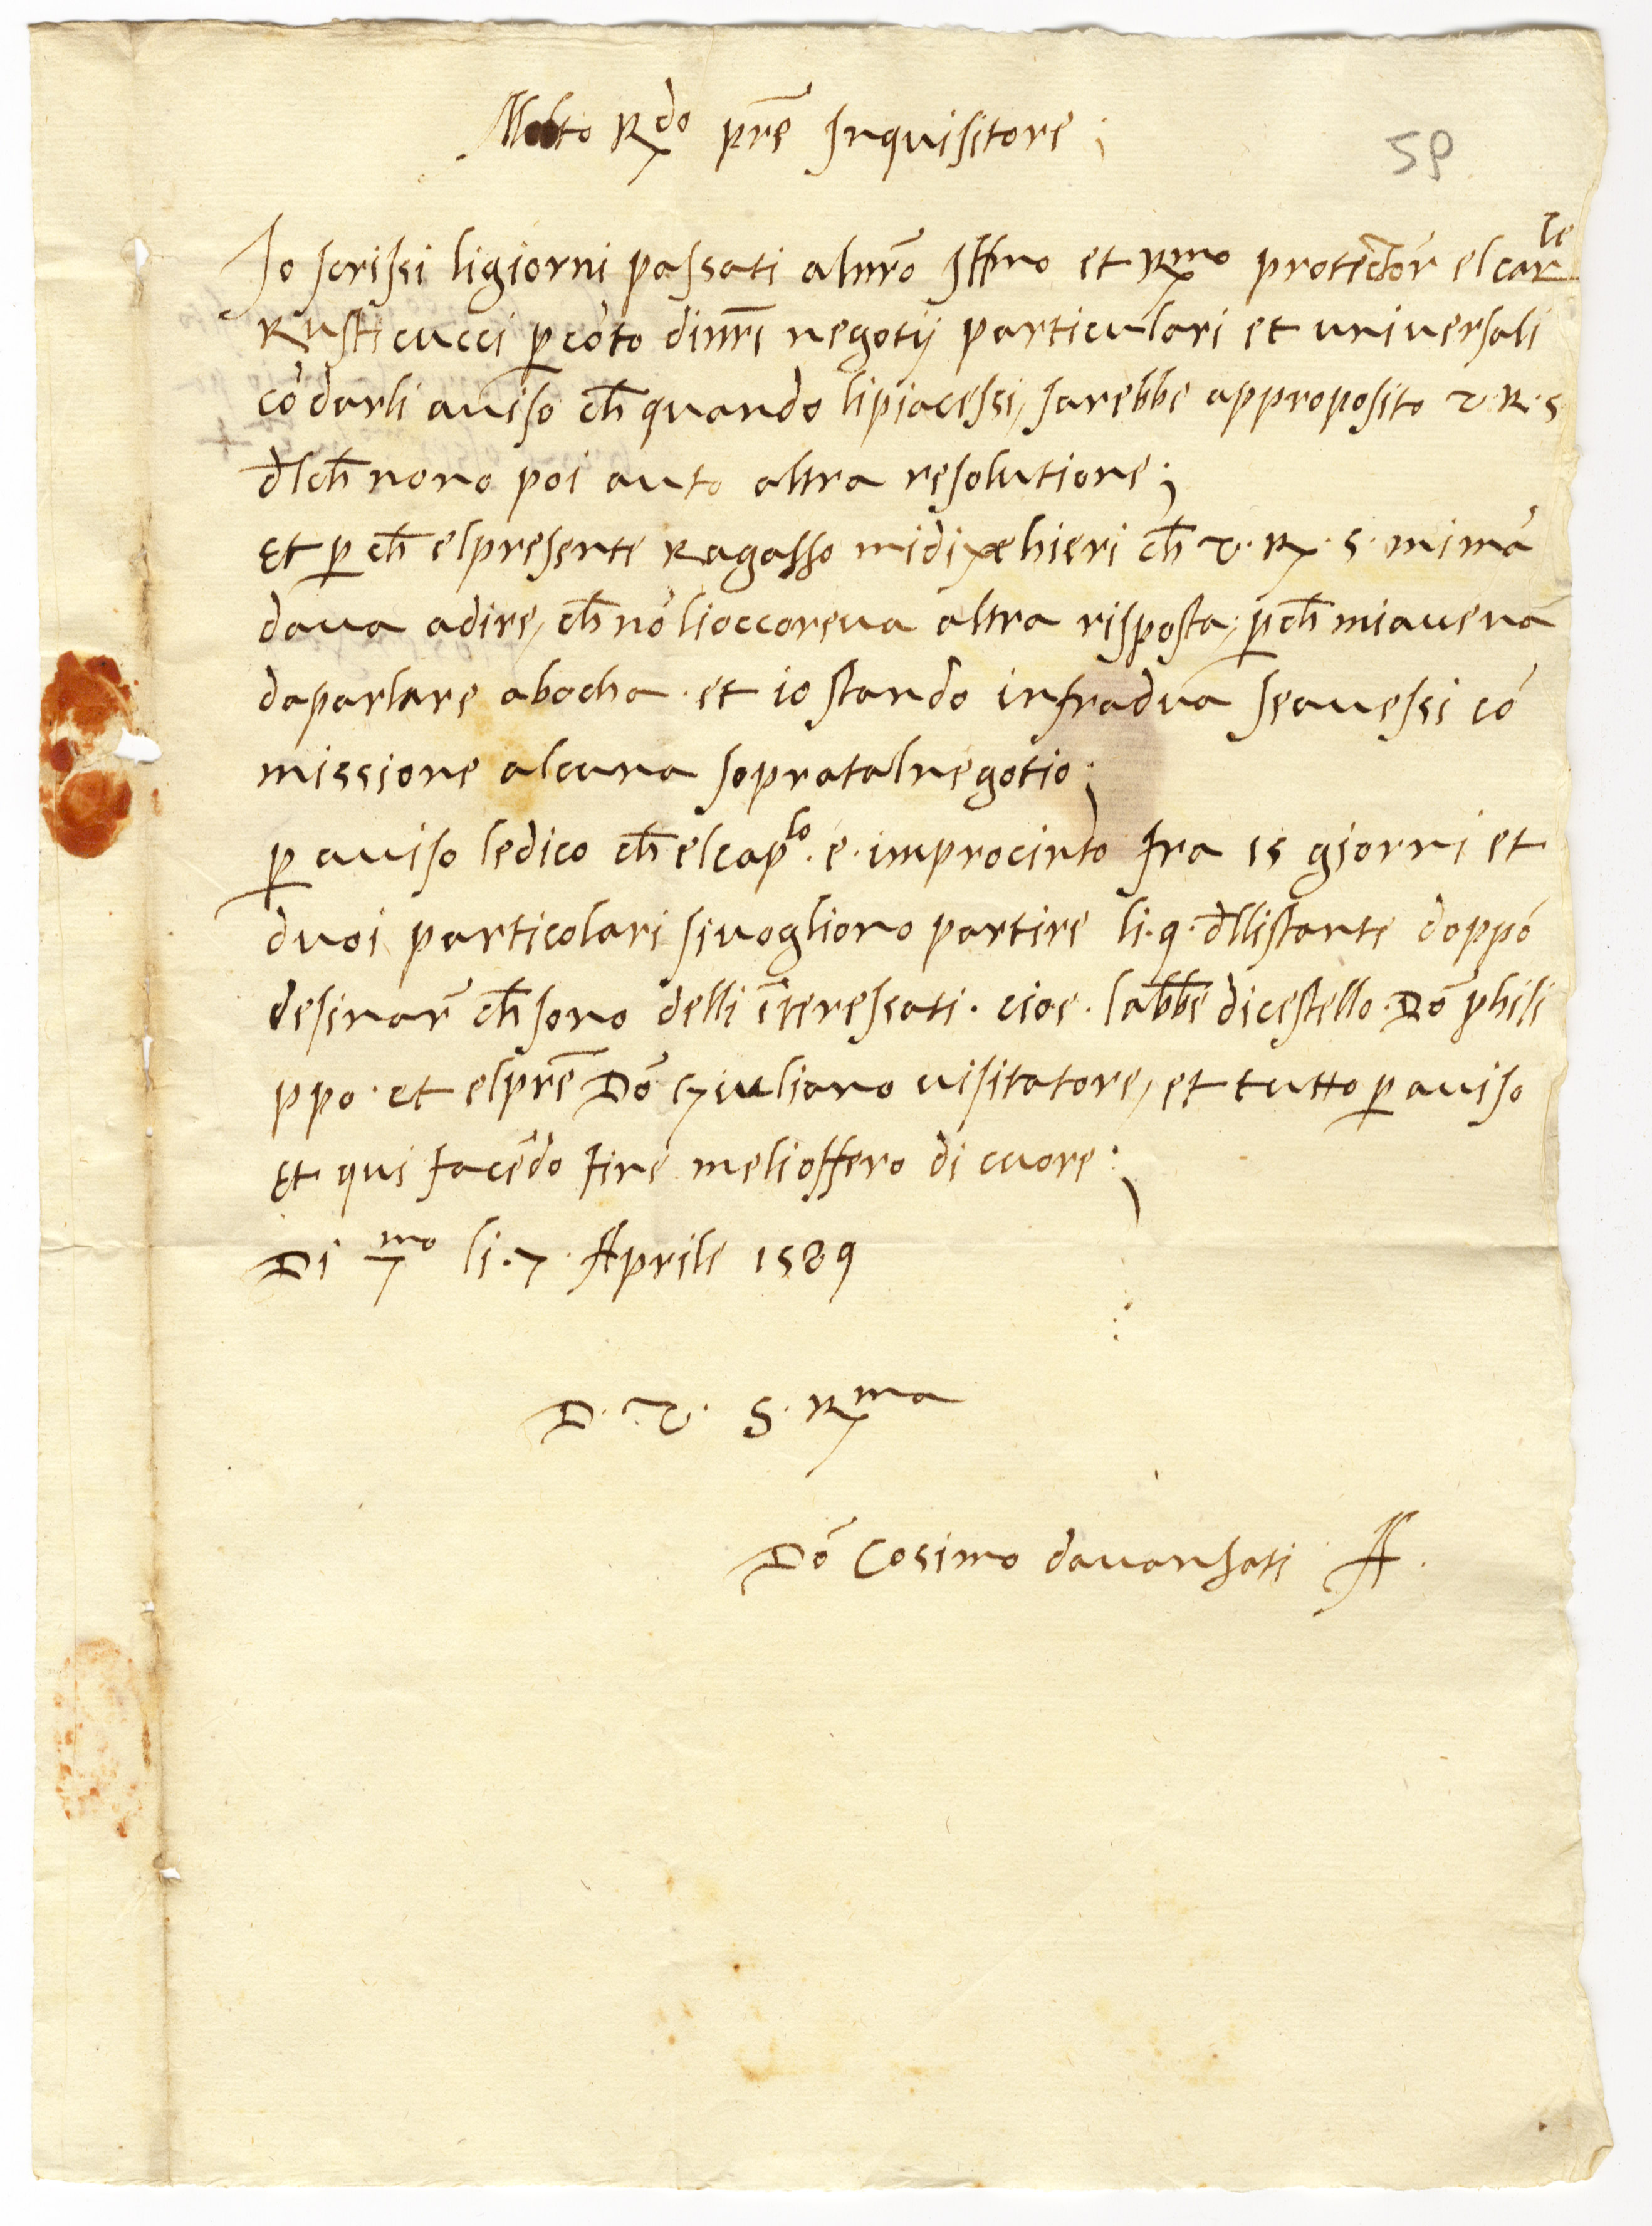 Molto R.do pre Inquisitore;
59
Io scrissi li giorni passati al nro Ill.mo et R.mo protector el car.le
Rusticucci p coto di nri negotij particulari et universali
co darli aviso ch quando li piacessi, sarebbe approposito v. R. s
dl ch non o poi auto altra resolutione;
Et p ch el presente Ragasso mi dixe hieri ch v. R. s. mi ma
dava a dire, ch no li occoreva altra risposta, p ch mi aveva
da parlare a bocha. et io stando infradua se avessi co
missione alcuna sopra tal negotio;
p aviso le dico ch el cap.lo. e. improcinto fra 15 giorni et
duoi particolari si vogliono partire li. 9. dllistante doppo
desinar ch sono delli iteressati. cioe. labbe di cestello. Do phili
ppo. et el pre Do Giuliano visitatore, et tutto p aviso
Et qui facedo fine me li offero di cuore;
Di li. 7. Aprile 1589
D. V. S. R.ma
Do Cosimo davanzati A.